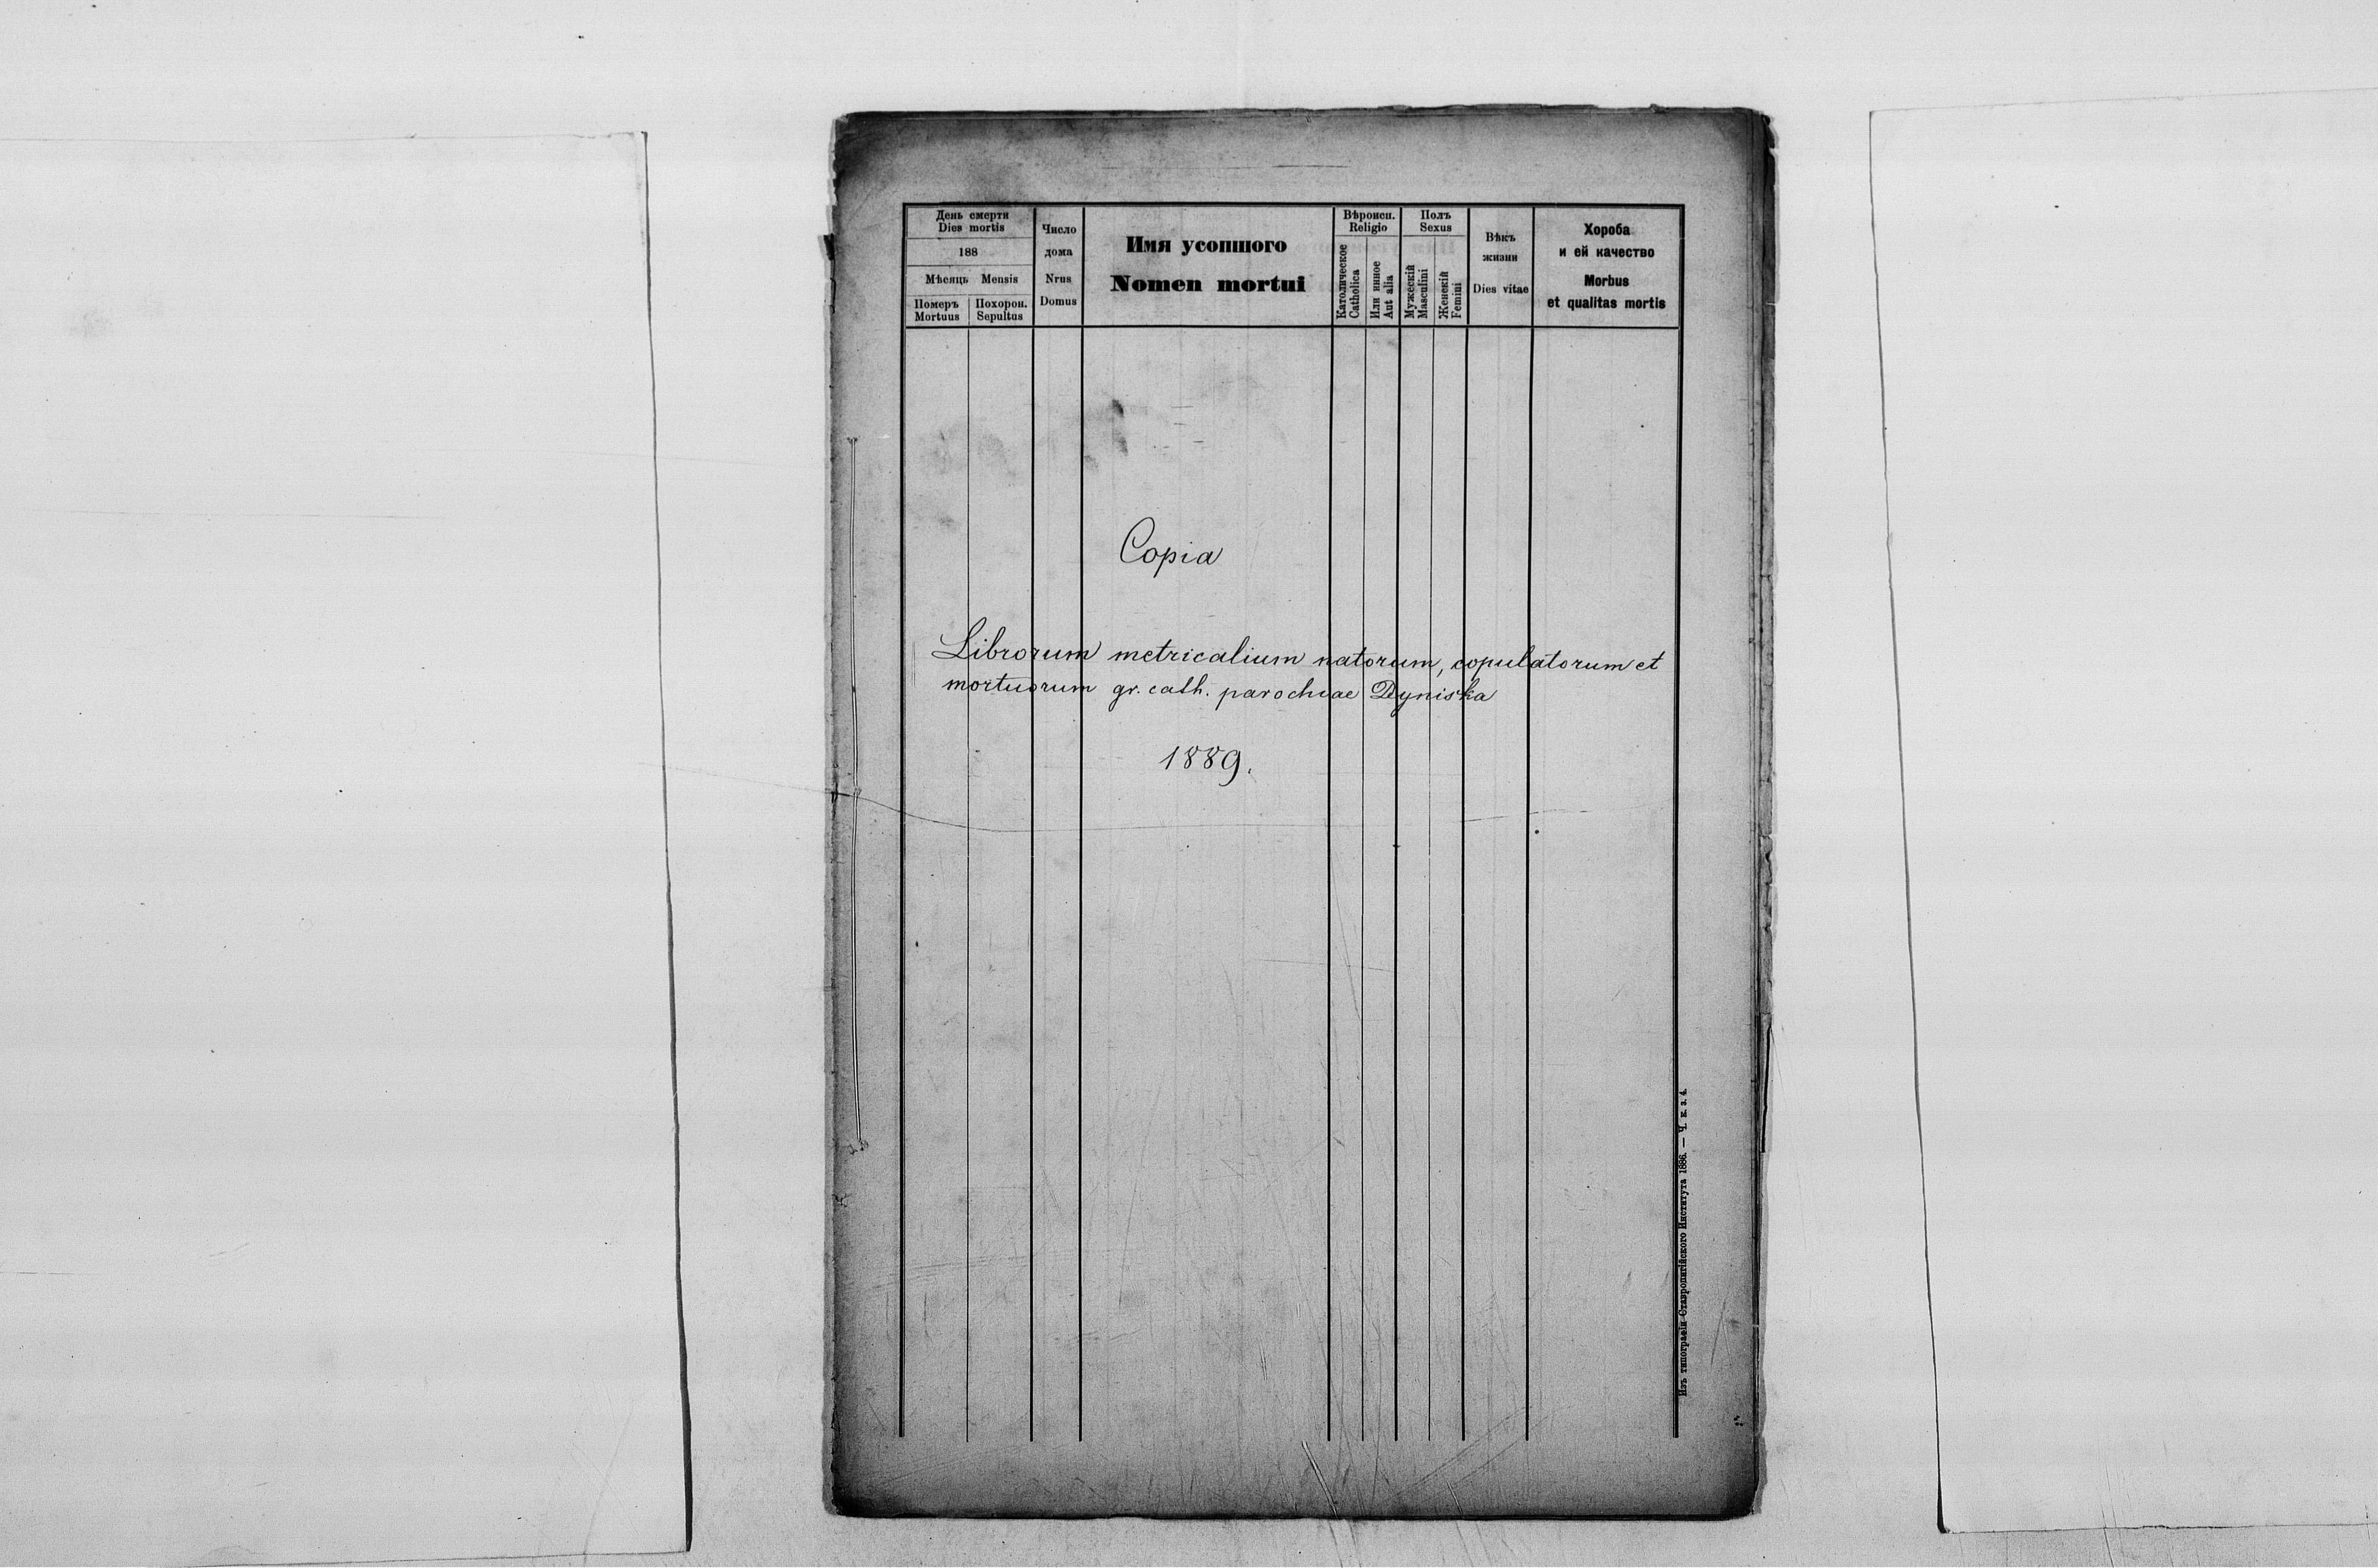 День смерти
Dies mortis
188
Мѣсяць Mensis
Померъ
Mortuus
Похорон.
Sepultus
Число
дома
Nrus
Domus
Имя усопшого
Nomen mortui
Вѣроисп.
Religio
Католическое
Catholica
Или инное
Aut alia
Полъ
Sexus
Мужескій
Masculini
Женскій
Femini
Вѣкъ
жизни
Dies vitae
Хороба
и ей качество
Morbus
et qualitas mortis
Copia
Librorum metricalium natorum, copulatorum et
mortuorum gr. cath. parochiae Dyniska
1889.
Изъ типографіи Ставропигійского Института 1886. — Ч. к. з. 4.